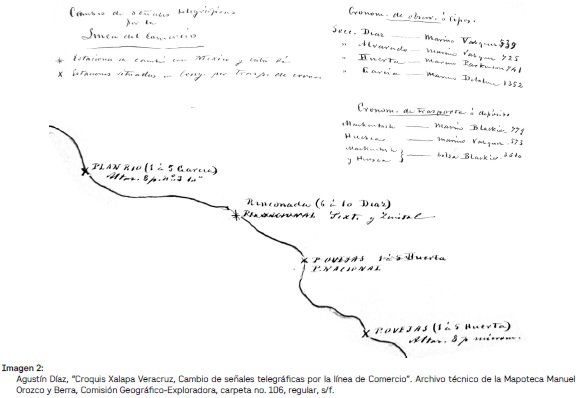 Cambio de señales telegráficas
por la
Linea del Comercio
* Estaciones de camb. con México y
x Estaciones situadas por transp. de cronos
Cronom. de observ. ó tipos.
Secc. Diaz — Marino Vasquez 539
" Alvarado — Marino Vasquez 725
" Huerta — Marino Parkinson 741
" Garcia — Marino 1352
Cronom. de trasporte ó depósito
Mackintosh — Marino Blackie 779
Huesca — Marino Vasquez 573
Mackintosh
y Huesca } — bolsa Blackie
PLAN RIO (1 á 5 Garcia)
Altos. 8 p.
Rinconada (6 á 10 Diaz)
Sext. y
P. OVEJAS 1 á 5 Huerta
P. NACIONAL
P. OVEJAS (1 á 5 Huerta)
Altos. 8 p
Imagen 2:
Agustín Díaz, “Croquis Xalapa Veracruz, Cambio de señales telegráficas por la línea de Comercio”. Archivo técnico de la Mapoteca Manuel
Orozco y Berra, Comisión Geográfico-Exploradora, carpeta no. 106, regular, s/f.